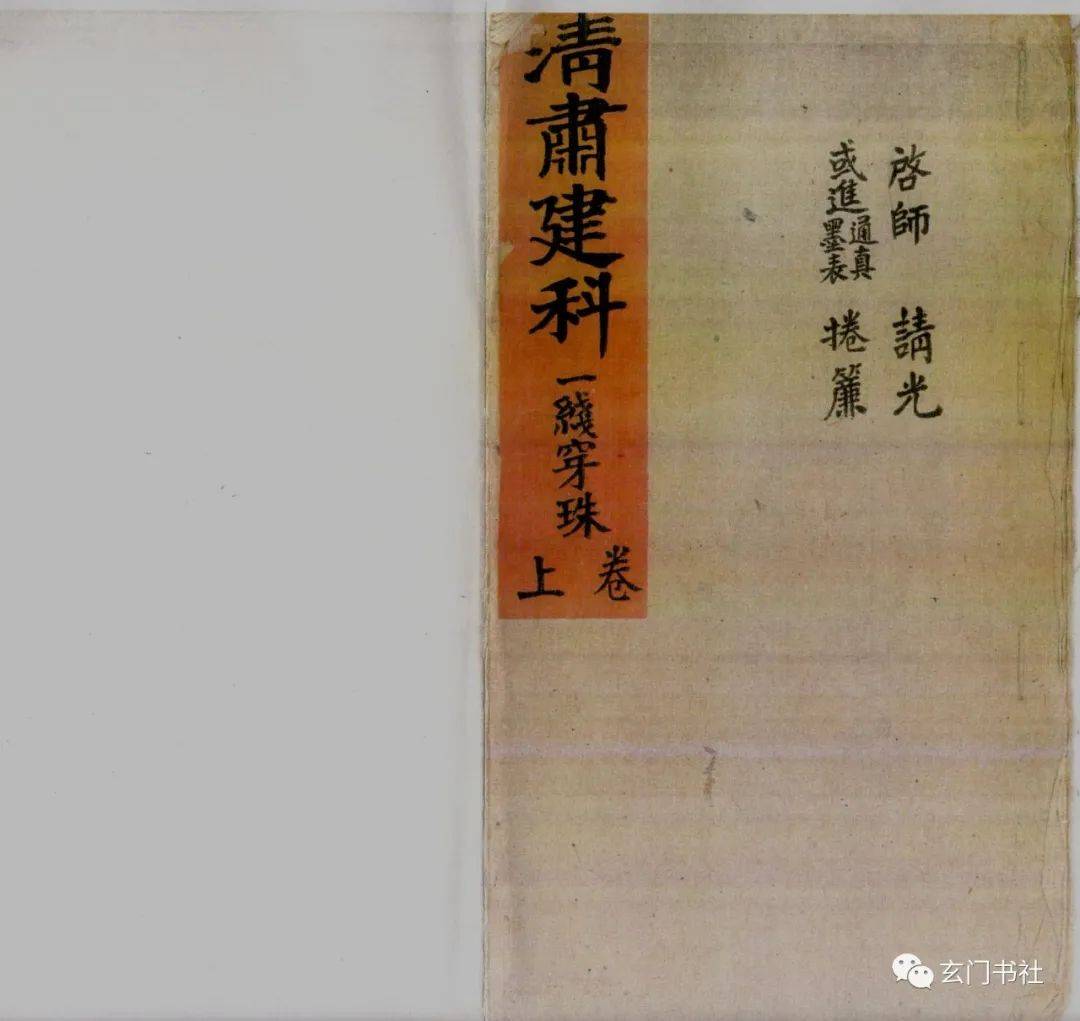 啓師 請光
或進通真墨表 捲簾
清肅建科 一綫穿珠 卷上
玄门书社